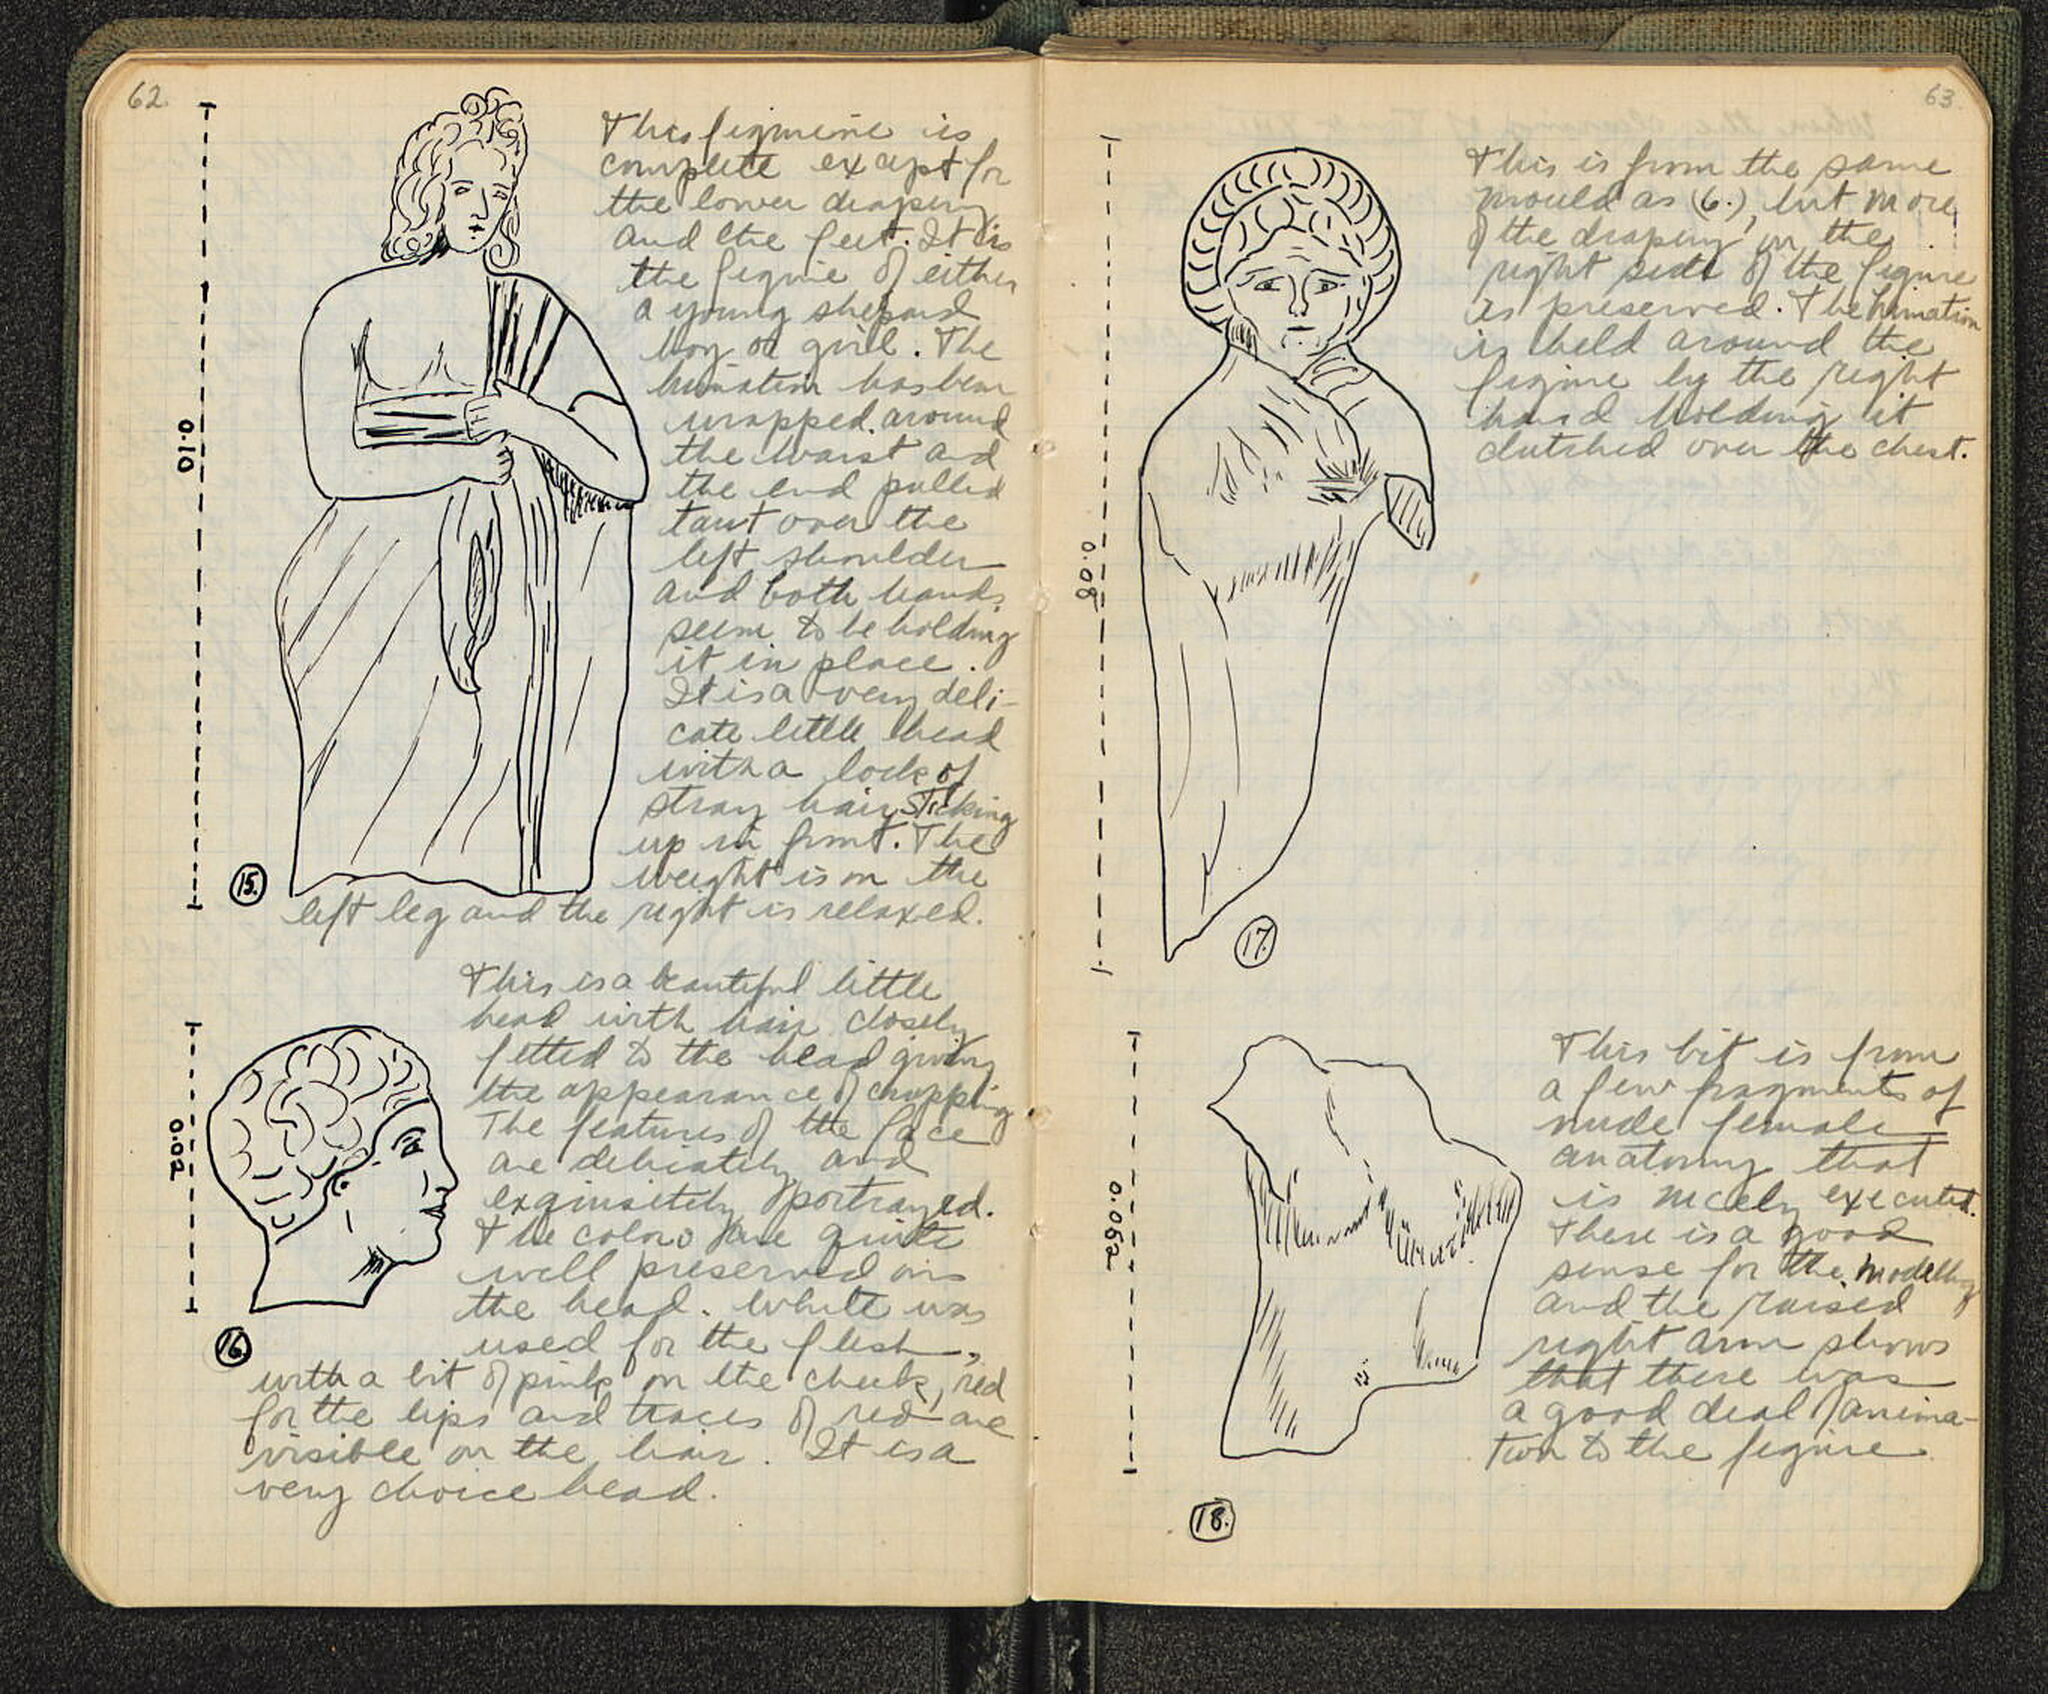 62.
This figurine is
complete except for
the lower drapery
and the feet. It is
the figure of either
a young shepard
boy or girl. The
himation has been
wrapped around
the waist and
the end pulled
taut over the
left shoulder
and both hands
seem to be holding
it in place.
It is a very deli-
cate little head
with a lock of
stray hair sticking
up in front. The
weight is on the
left leg and the right is relaxed.
0.10
15.
This is a beautiful little
head with hair closely
fitted to the head giving
the appearance of cropping
The features of the face
are delicately and
exquisitely portrayed.
The colors are quite
well preserved on
the head. White was
used for the flesh,
with a bit of pink on the cheek, red
for the lips and traces of red are
visible on the hair. It is a
very choice head.
0.02
16.
63.
This is from the same
mould as (6.), but more
of the drapery on the
right side of the figure
is preserved. The himation
is held around the
figure by the right
hand holding it
clutched over the chest.
0.08
17.
This bit is from
a few fragments of
nude female
anatomy that
is nicely executed.
There is a good
sense for the modelling
and the raised
right arm shows
that there was
a good deal of anima-
tion to the figure
0.052
18.